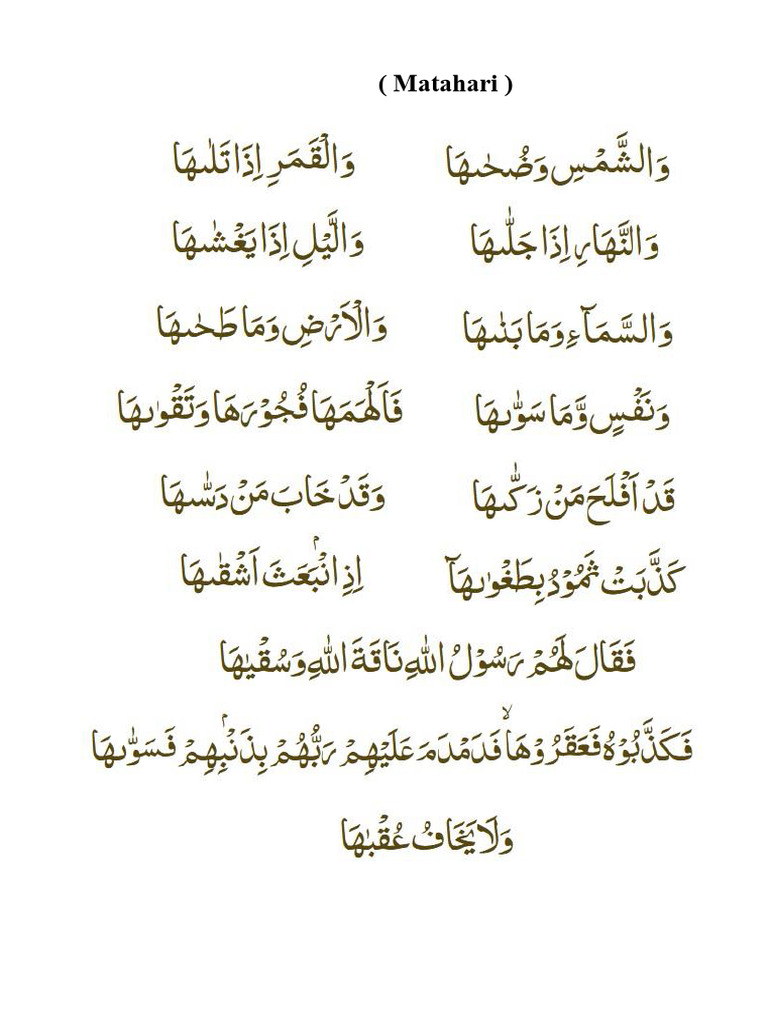 ( Matahari )
وَالشَّمْسِ وَضُحٰىهَا وَالْقَمَرِ اِذَا تَلٰىهَا
وَالنَّهَارِ اِذَا جَلّٰىهَا وَالَّيْلِ اِذَا يَغْشٰىهَا
وَالسَّمَاۤءِ وَمَا بَنٰىهَا وَالْاَرْضِ وَمَا طَحٰىهَا
وَنَفْسٍ وَّمَا سَوّٰىهَا فَاَلْهَمَهَا فُجُوْرَهَا وَتَقْوٰىهَا
قَدْ اَفْلَحَ مَنْ زَكّٰىهَا وَقَدْ خَابَ مَنْ دَسّٰىهَا
كَذَّبَتْ ثَمُوْدُ بِطَغْوٰىهَآ اِذِ انْۢبَعَثَ اَشْقٰىهَا
فَقَالَ لَهُمْ رَسُوْلُ اللّٰهِ نَاقَةَ اللّٰهِ وَسُقْيٰهَا
فَكَذَّبُوْهُ فَعَقَرُوْهَاۙ فَدَمْدَمَ عَلَيْهِمْ رَبُّهُمْ بِذَنْۢبِهِمْ فَسَوّٰىهَا
وَلَا يَخَافُ عُقْبٰهَا